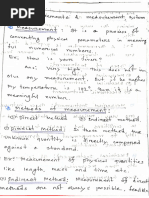 measurements & measurement system
① Measurement: It is a process of
converting physical parameters in meaning
ful numerical numbers.
Ex: How is your fever?
Very high → does not
give any measurement. But if he/she says
My temperature is 102°, then it is a
measurement.
② Methods of measurement:
(i) Direct Method (ii) Indirect method
(i) Direct method: In these method the
unknown quantities directly compared
against a standard.
Ex: Measurement of physical quantities
like length, mass and time etc.
(ii) Indirect Methods: Measurement of direct
methods are not always possible, feasible